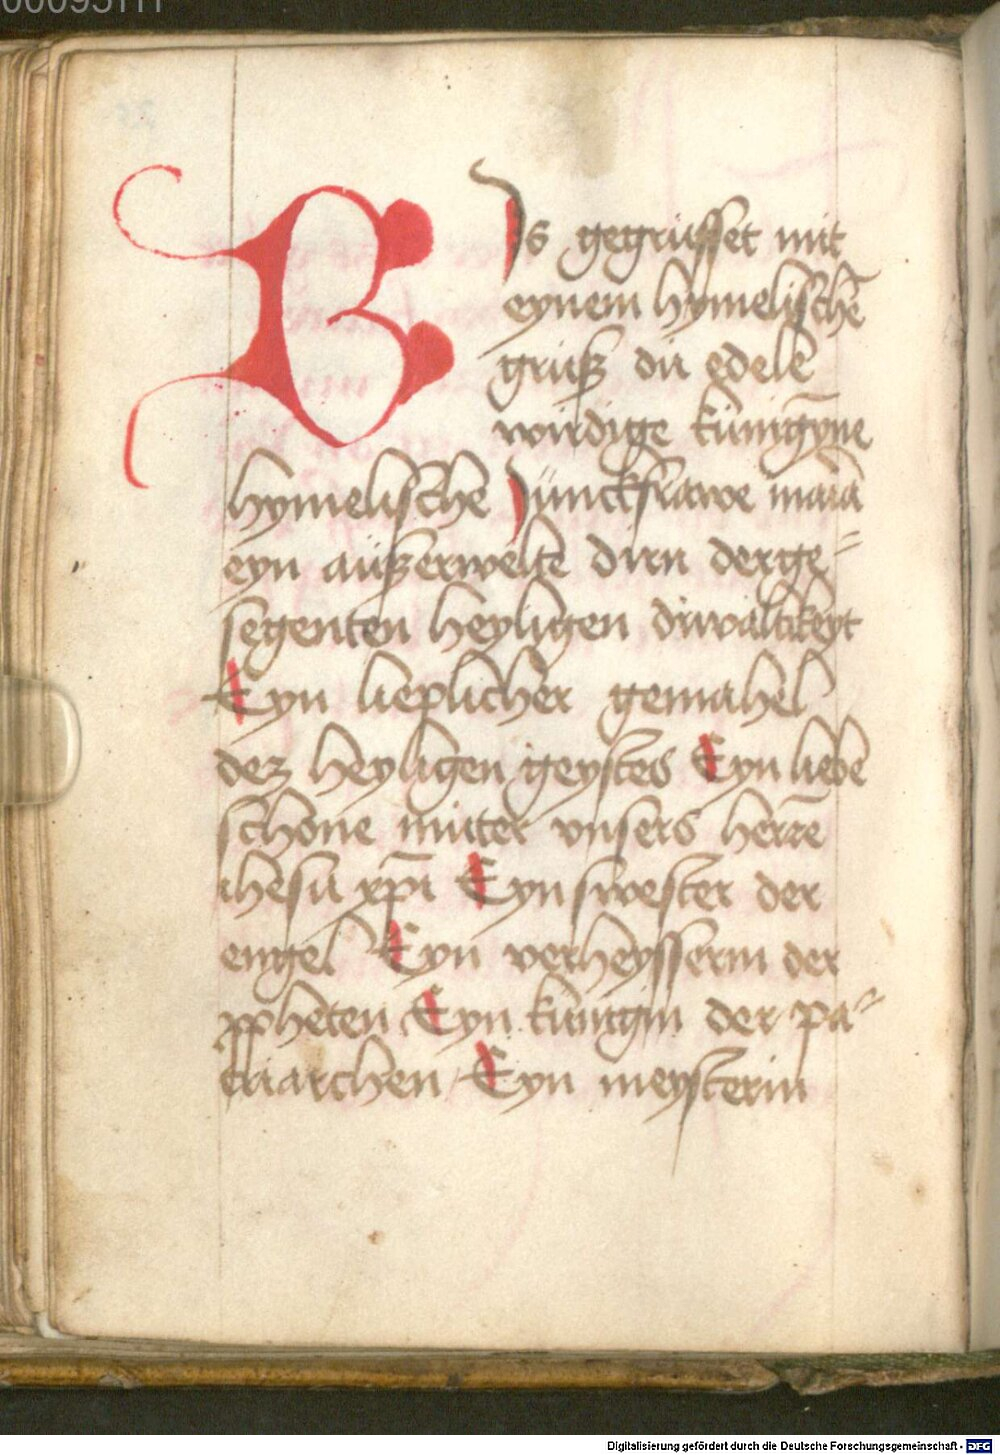 BIs gegrüsset mit
eynem hymelischē
grüß dü edele
wirdige künigȳne
hymelische Jünckfrawe maria
eyn aüßerwelte dirn der ge=
segenten heyligen driualtikeyt
Eyn lieplicher gemahel
dez heyligen geystes Eyn liebe
schone müter vnsers herrē
ihesu xp̄i Eyn swester der
engel Eyn verheysserin der
ꝓpheten Eyn künigin der pa=
triarchen Eyn meysterin
Digitalisierung gefördert durch die Deutsche Forschungsgemeinschaft - DFG